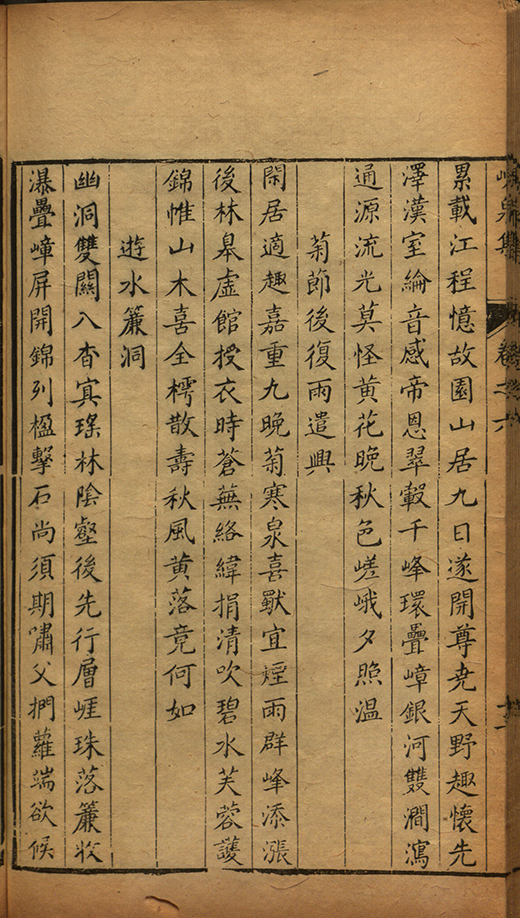 峴泉集 卷之六
累載江程憶故園山居九日遂開尊堯天野趣懷先
澤漢室綸音感帝恩翠轂千峰環疊嶂銀河雙澗瀉
通源流光莫怪黄花晚秋色嵯峨夕照温
菊節後復雨遣興
閑居適趣嘉重九晚菊寒泉喜獻宜煙雨群峰添漲
後林皋虛館授衣時蒼蕪絡緯捐清吹碧水芙蓉護
錦帷山木喜全樗散壽秋風黄落竟何如
遊水簾洞
幽洞雙關入杳冥瑹林陰壑後先行層崕珠落簾收
瀑疊嶂屏開錦列楹擊石尚須期嘯父捫蘿端欲候